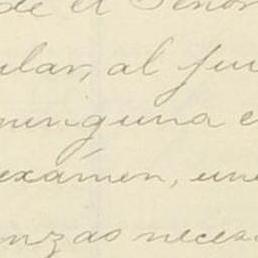 de el Señor
ular, al fu
ninguna e
exámen, une
anzas neces